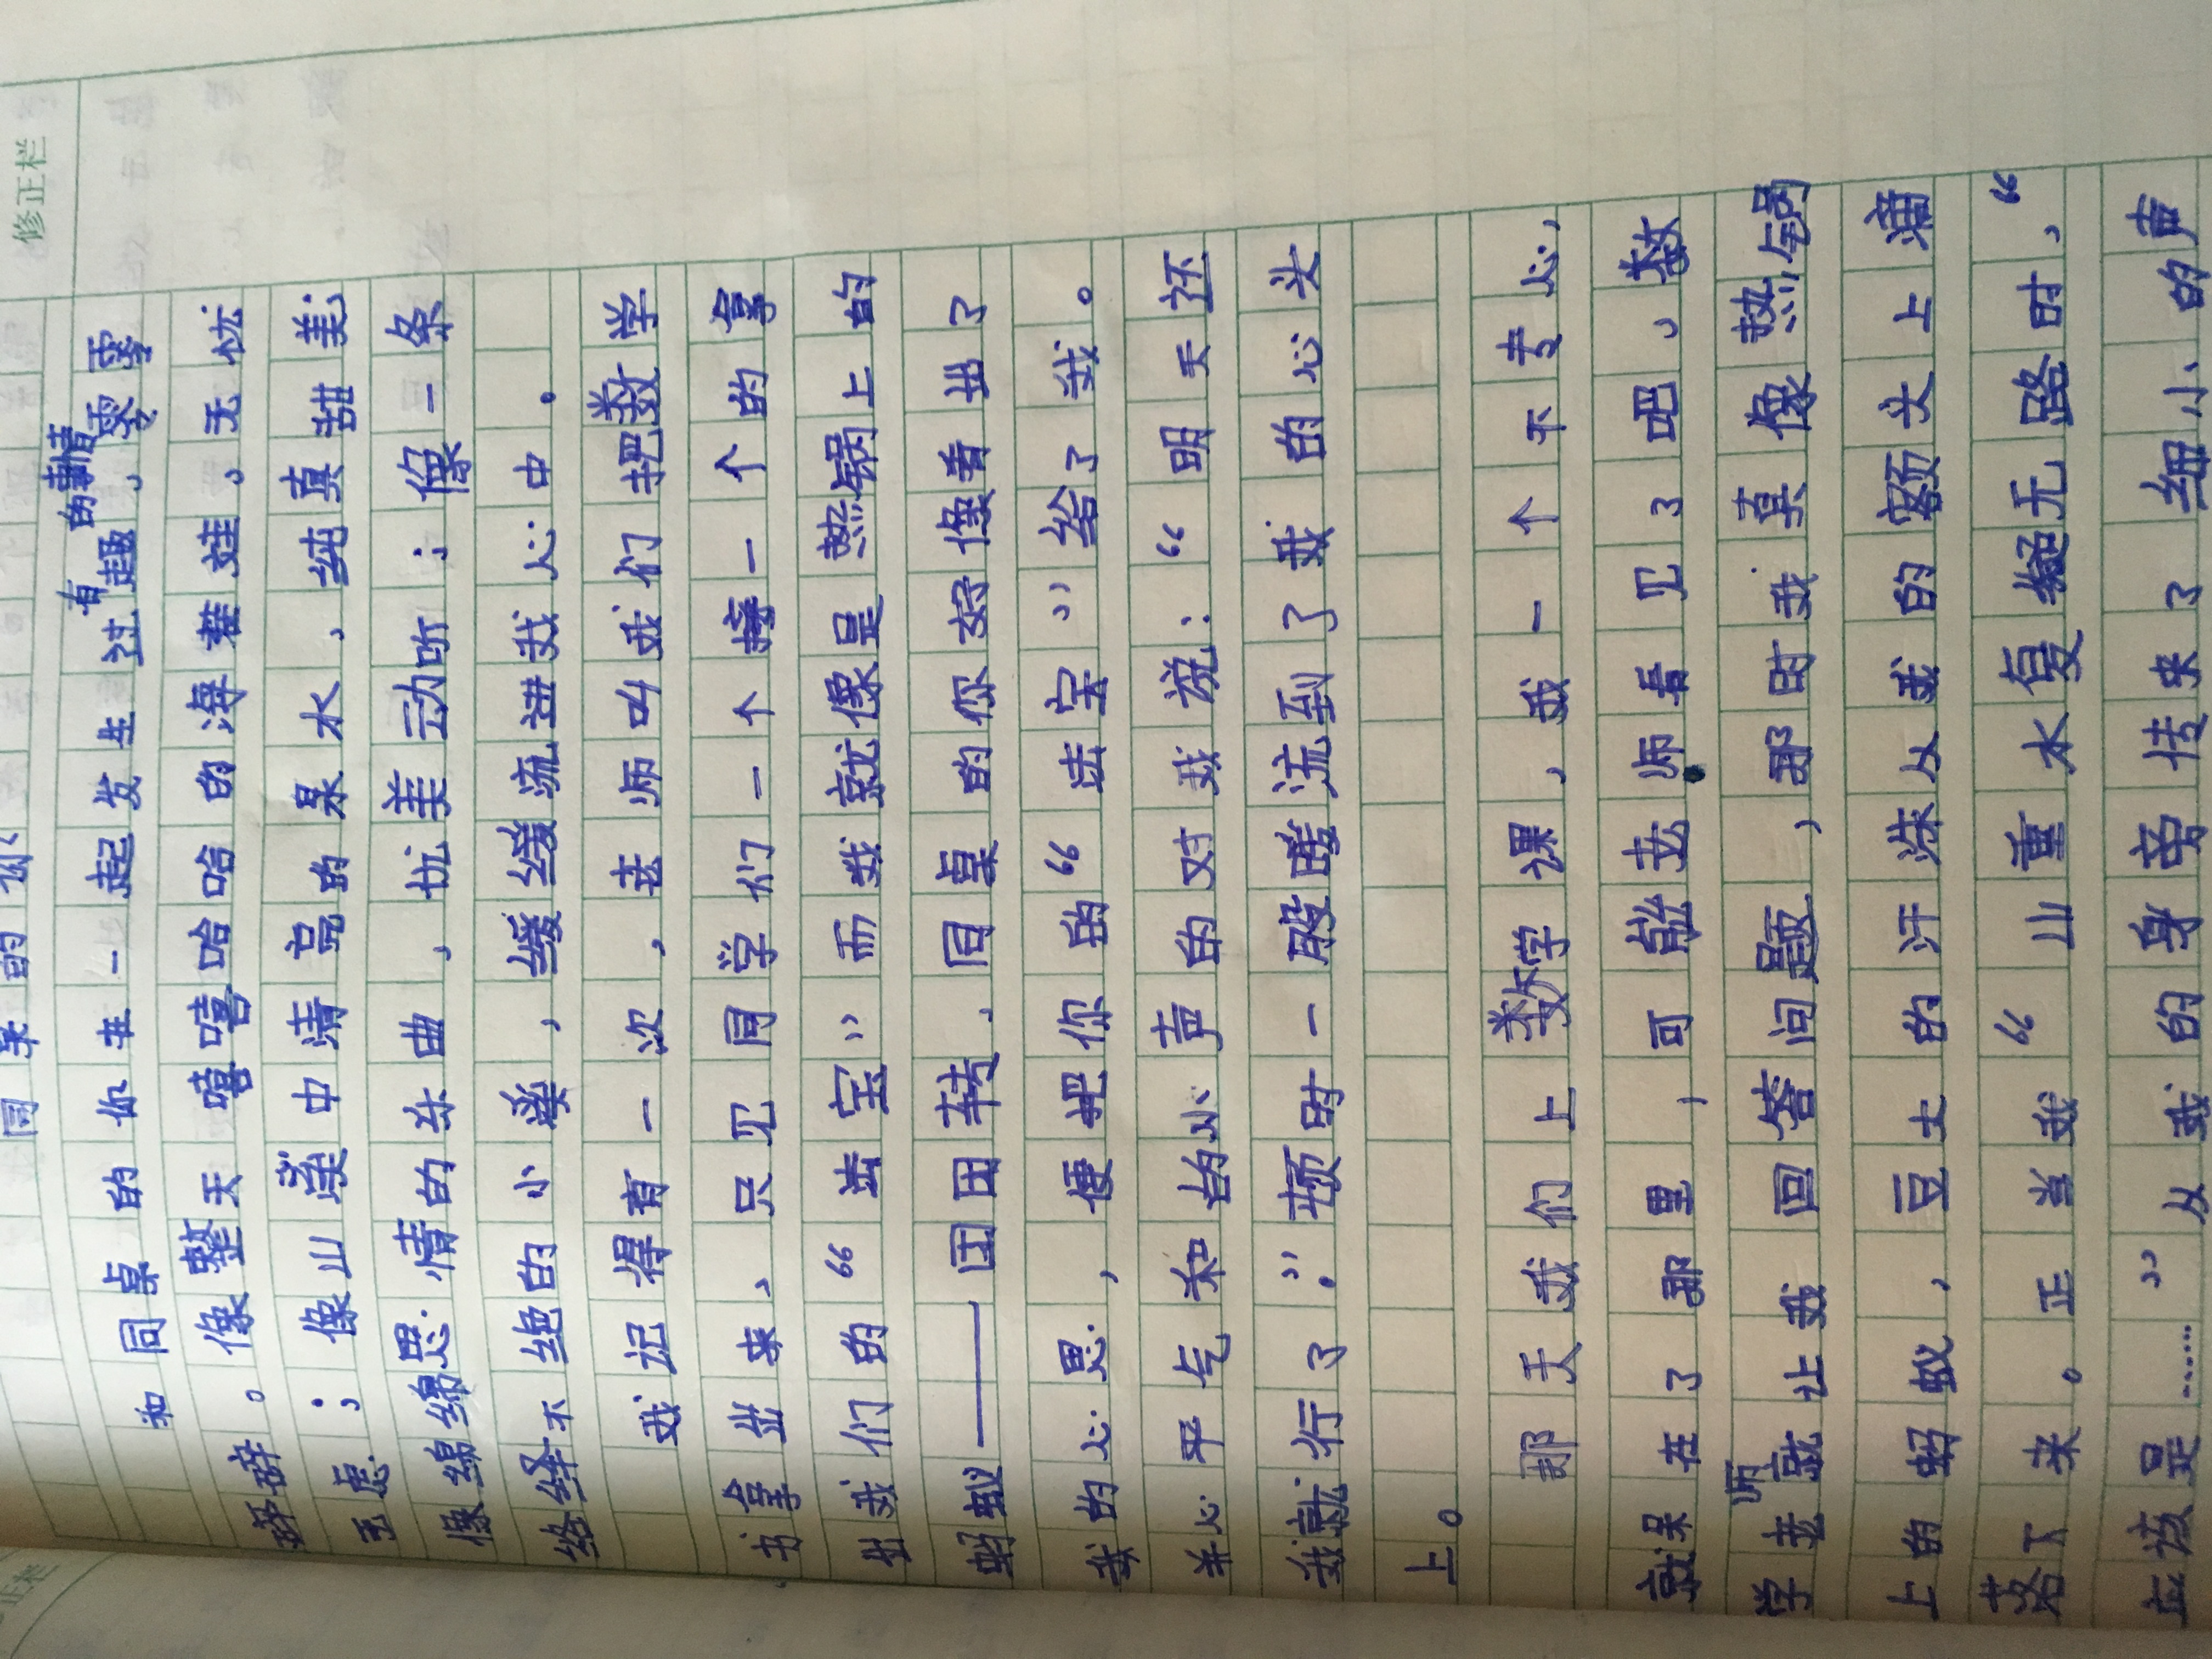 修正栏
同桌的你
和同桌的你在一起发生过有趣的事情,零零
碎碎。像整天嘻嘻哈哈的海蜇娃。无忧
无虑;像山涧中清亮的泉水,纯真甜美;
像绵绵思情的乐曲,优美动听;像一条
络绎不绝的小溪,缓缓流进我心中.
我记得有一次,老师叫我们把数学
书拿出来,只见同学们一个擦一个的拿
出我们的“法宝”而我就像是热锅上的
蚂蚁——团团转.同桌的你好像看出了
我的心思,便把你的“法宝”给了我。
并心平气和的小声的对我说:“明天还
我就行了”.顿时一股暖流到了我的心头
上。
那天我们上数学课,我一个不专心,
就呆在了那里,可能老师看见了吧、数
学老师就让我回答问题,那时我真像热锅
上的蚂蚁,豆大的汗珠从我的额头上滴
落了来。正当我“山重水复疑无路时,“
应该是……”从我的身旁传来了细小的声